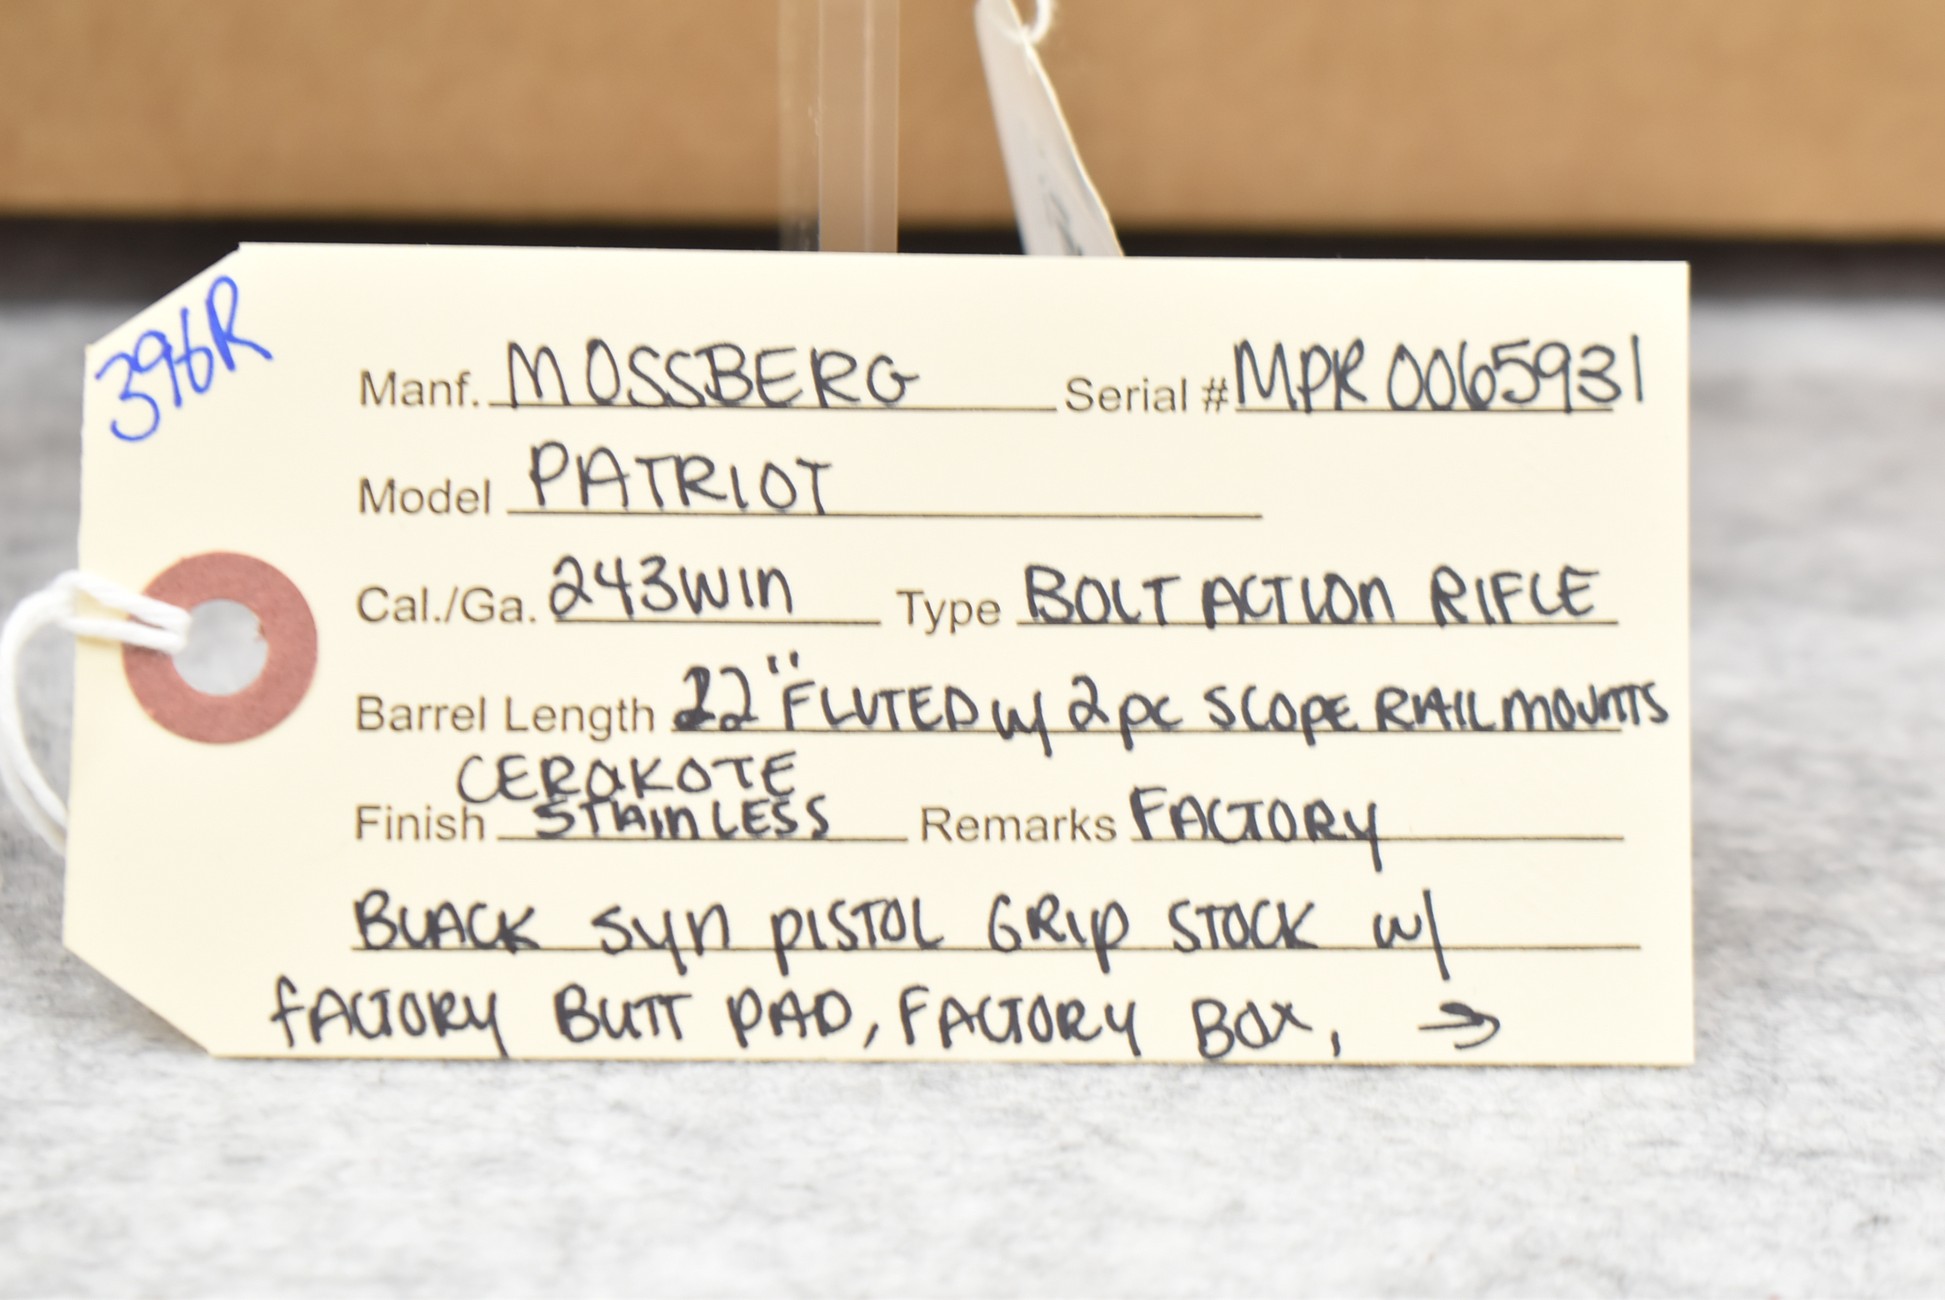 396R
Manf. MOSSBERG Serial # MPR0065931
Model PATRIOT
Cal./Ga. 243WIN Type BOLT ACTION RIFLE
Barrel Length 22" FLUTED w/ 2pc SCOPE RAIL MOUNTS
CERAKOTE
Finish STAINLESS Remarks FACTORY
BLACK SYN PISTOL GRIP STOCK w/
FACTORY BUTT PAD, FACTORY BOX, →